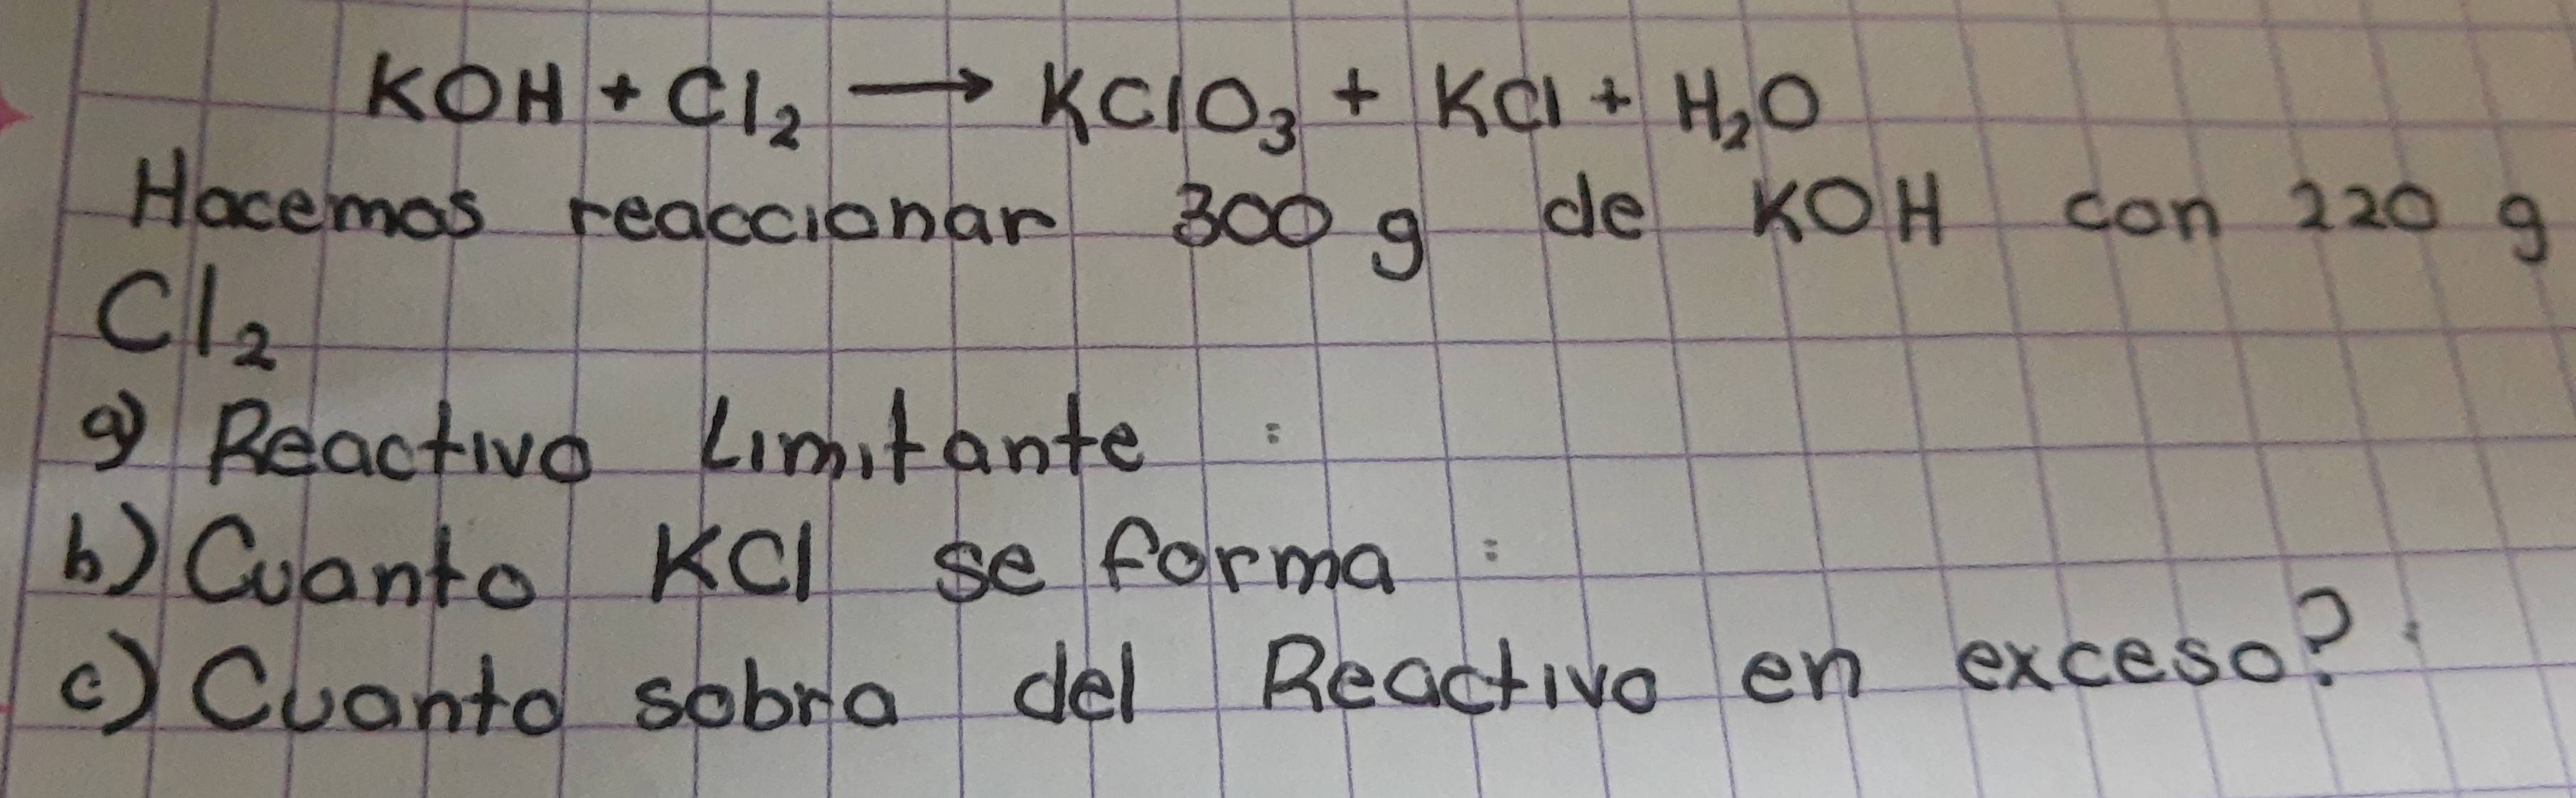 KOH + Cl₂ → KClO₃ + KCl + H₂O
Hacemos reaccionar 300 g de KOH con 220 g
Cl₂
a) Reactivo Limitante :
b) Cuanto KCl se forma :
c) Cuanto sobra del Reactivo en exceso? :